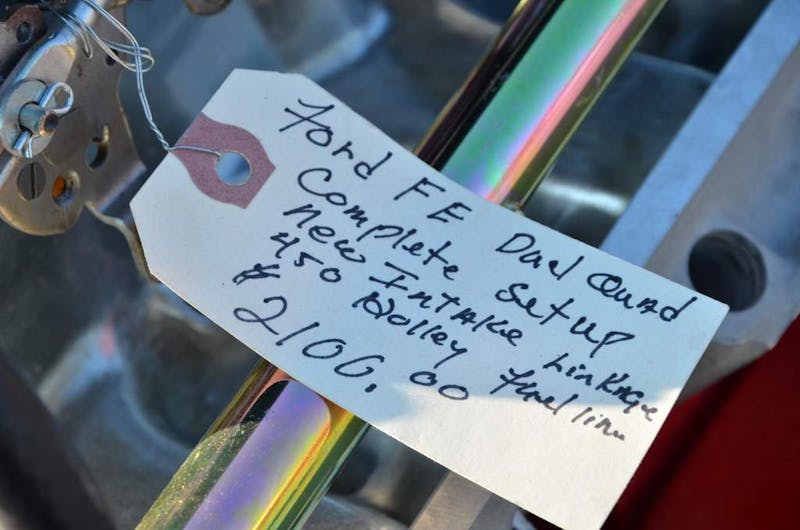 Ford FE Dual Quad
Complete Setup
New Intake Linkage
450 Holley Fuel line
$ 2100.00